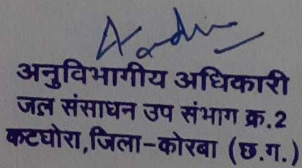 अनुविभागीय अधिकारी
जल संसाधन उप संभाग क्र.2
कटघोरा,जिला-कोरबा (छ.ग.)